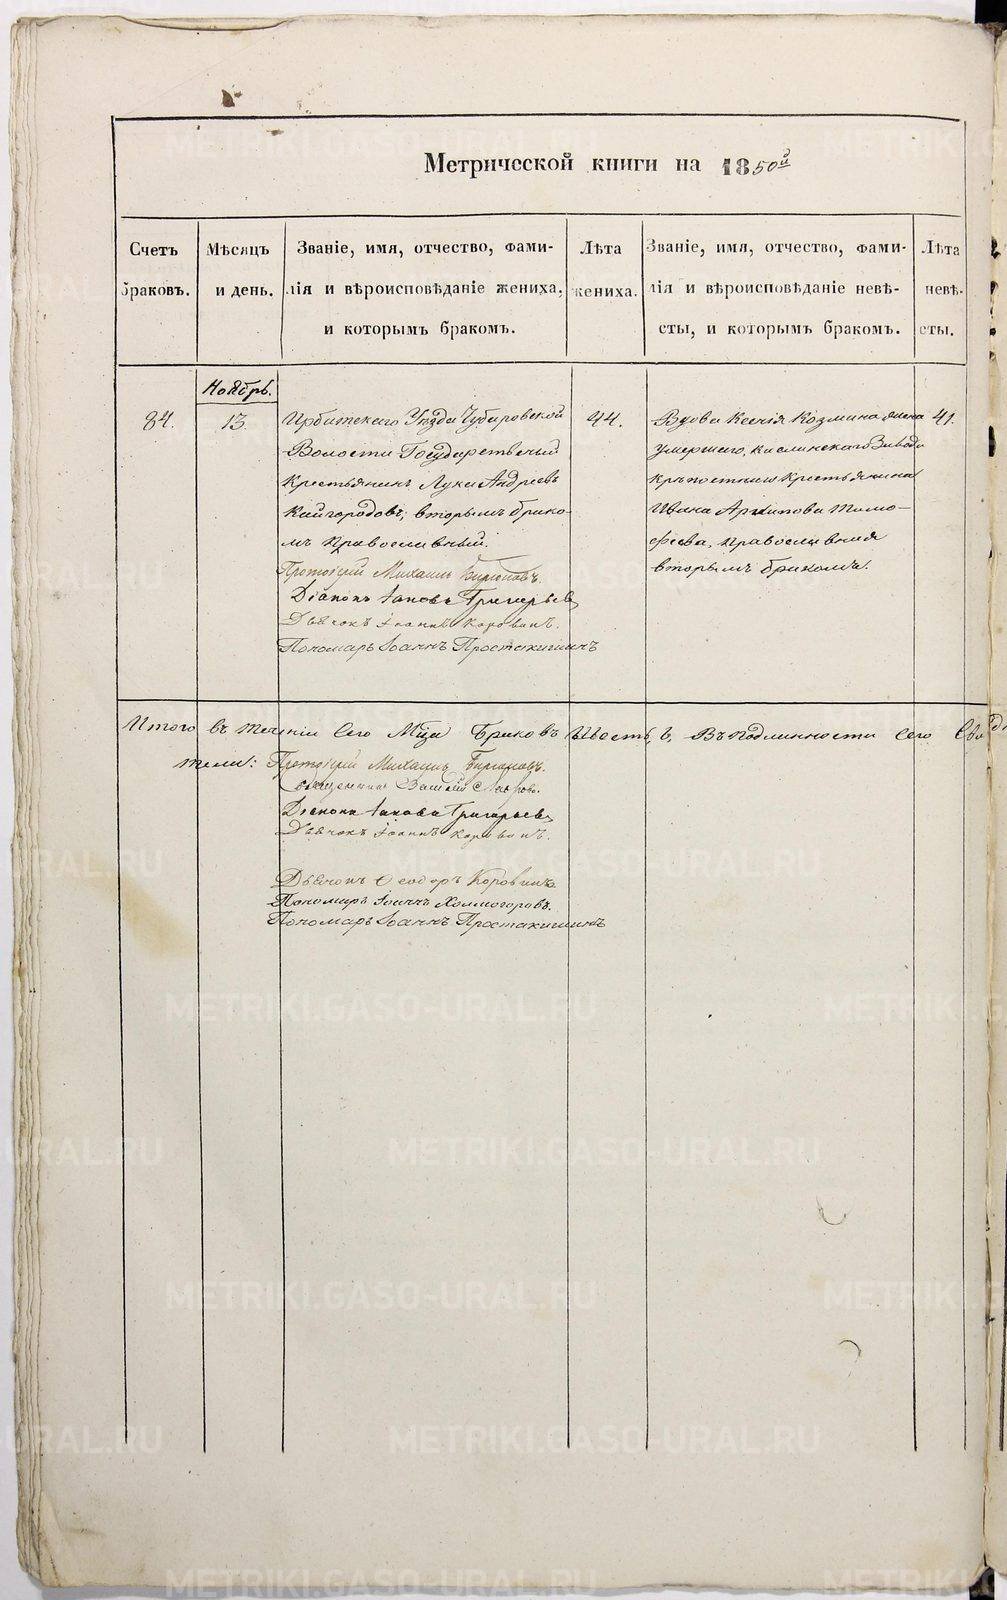 Метрической книги на 1850й
Счетъ браковъ.
Мѣсяцъ и день.
Званіе, имя, отчество, фами-
лія и вѣроисповѣданіе жениха,
и которымъ бракомъ.
Лѣта жениха.
Званіе, имя, отчество, фами-
лія и вѣроисповѣданіе невѣ-
сты, и которымъ бракомъ.
Лѣта невѣ-
сты.
Ноябрь.
84.
13.
Ирбитскаго Уѣзда Чубаровской
Волости Государственый
Крестьянинъ Лука Андреевъ
Кайгородовъ, вторымъ брако-
мъ православный.
Протоіерей Михаилъ
Діаконъ Іаковъ Григорьевъ
Дьячокъ Іоаннъ Коровинъ.
Пономарь Іоаннъ Простакишинъ
44.
Вдова Ксенія Козмина жена
умершаго, Каслинскаго Завода
крѣпостнаго Крестьянина
Ивана Архипова Тимо-
феева, православная
вторымъ бракомъ.
41.
Итого въ теченіи сего Мца браковъ шесть, Въ подлинности сего сви
тели: Протоіерей Михаилъ
Священникъ Василій
Діаконъ Іаковъ Григорьевъ
Дьячокъ Іоаннъ Коровинъ.
Дьячокъ Ѳеодоръ Коровинъ
Пономарь Іоаннъ Холмогоровъ.
Пономарь Іоаннъ Простакишинъ
METRIKI.GASO-URAL.RU